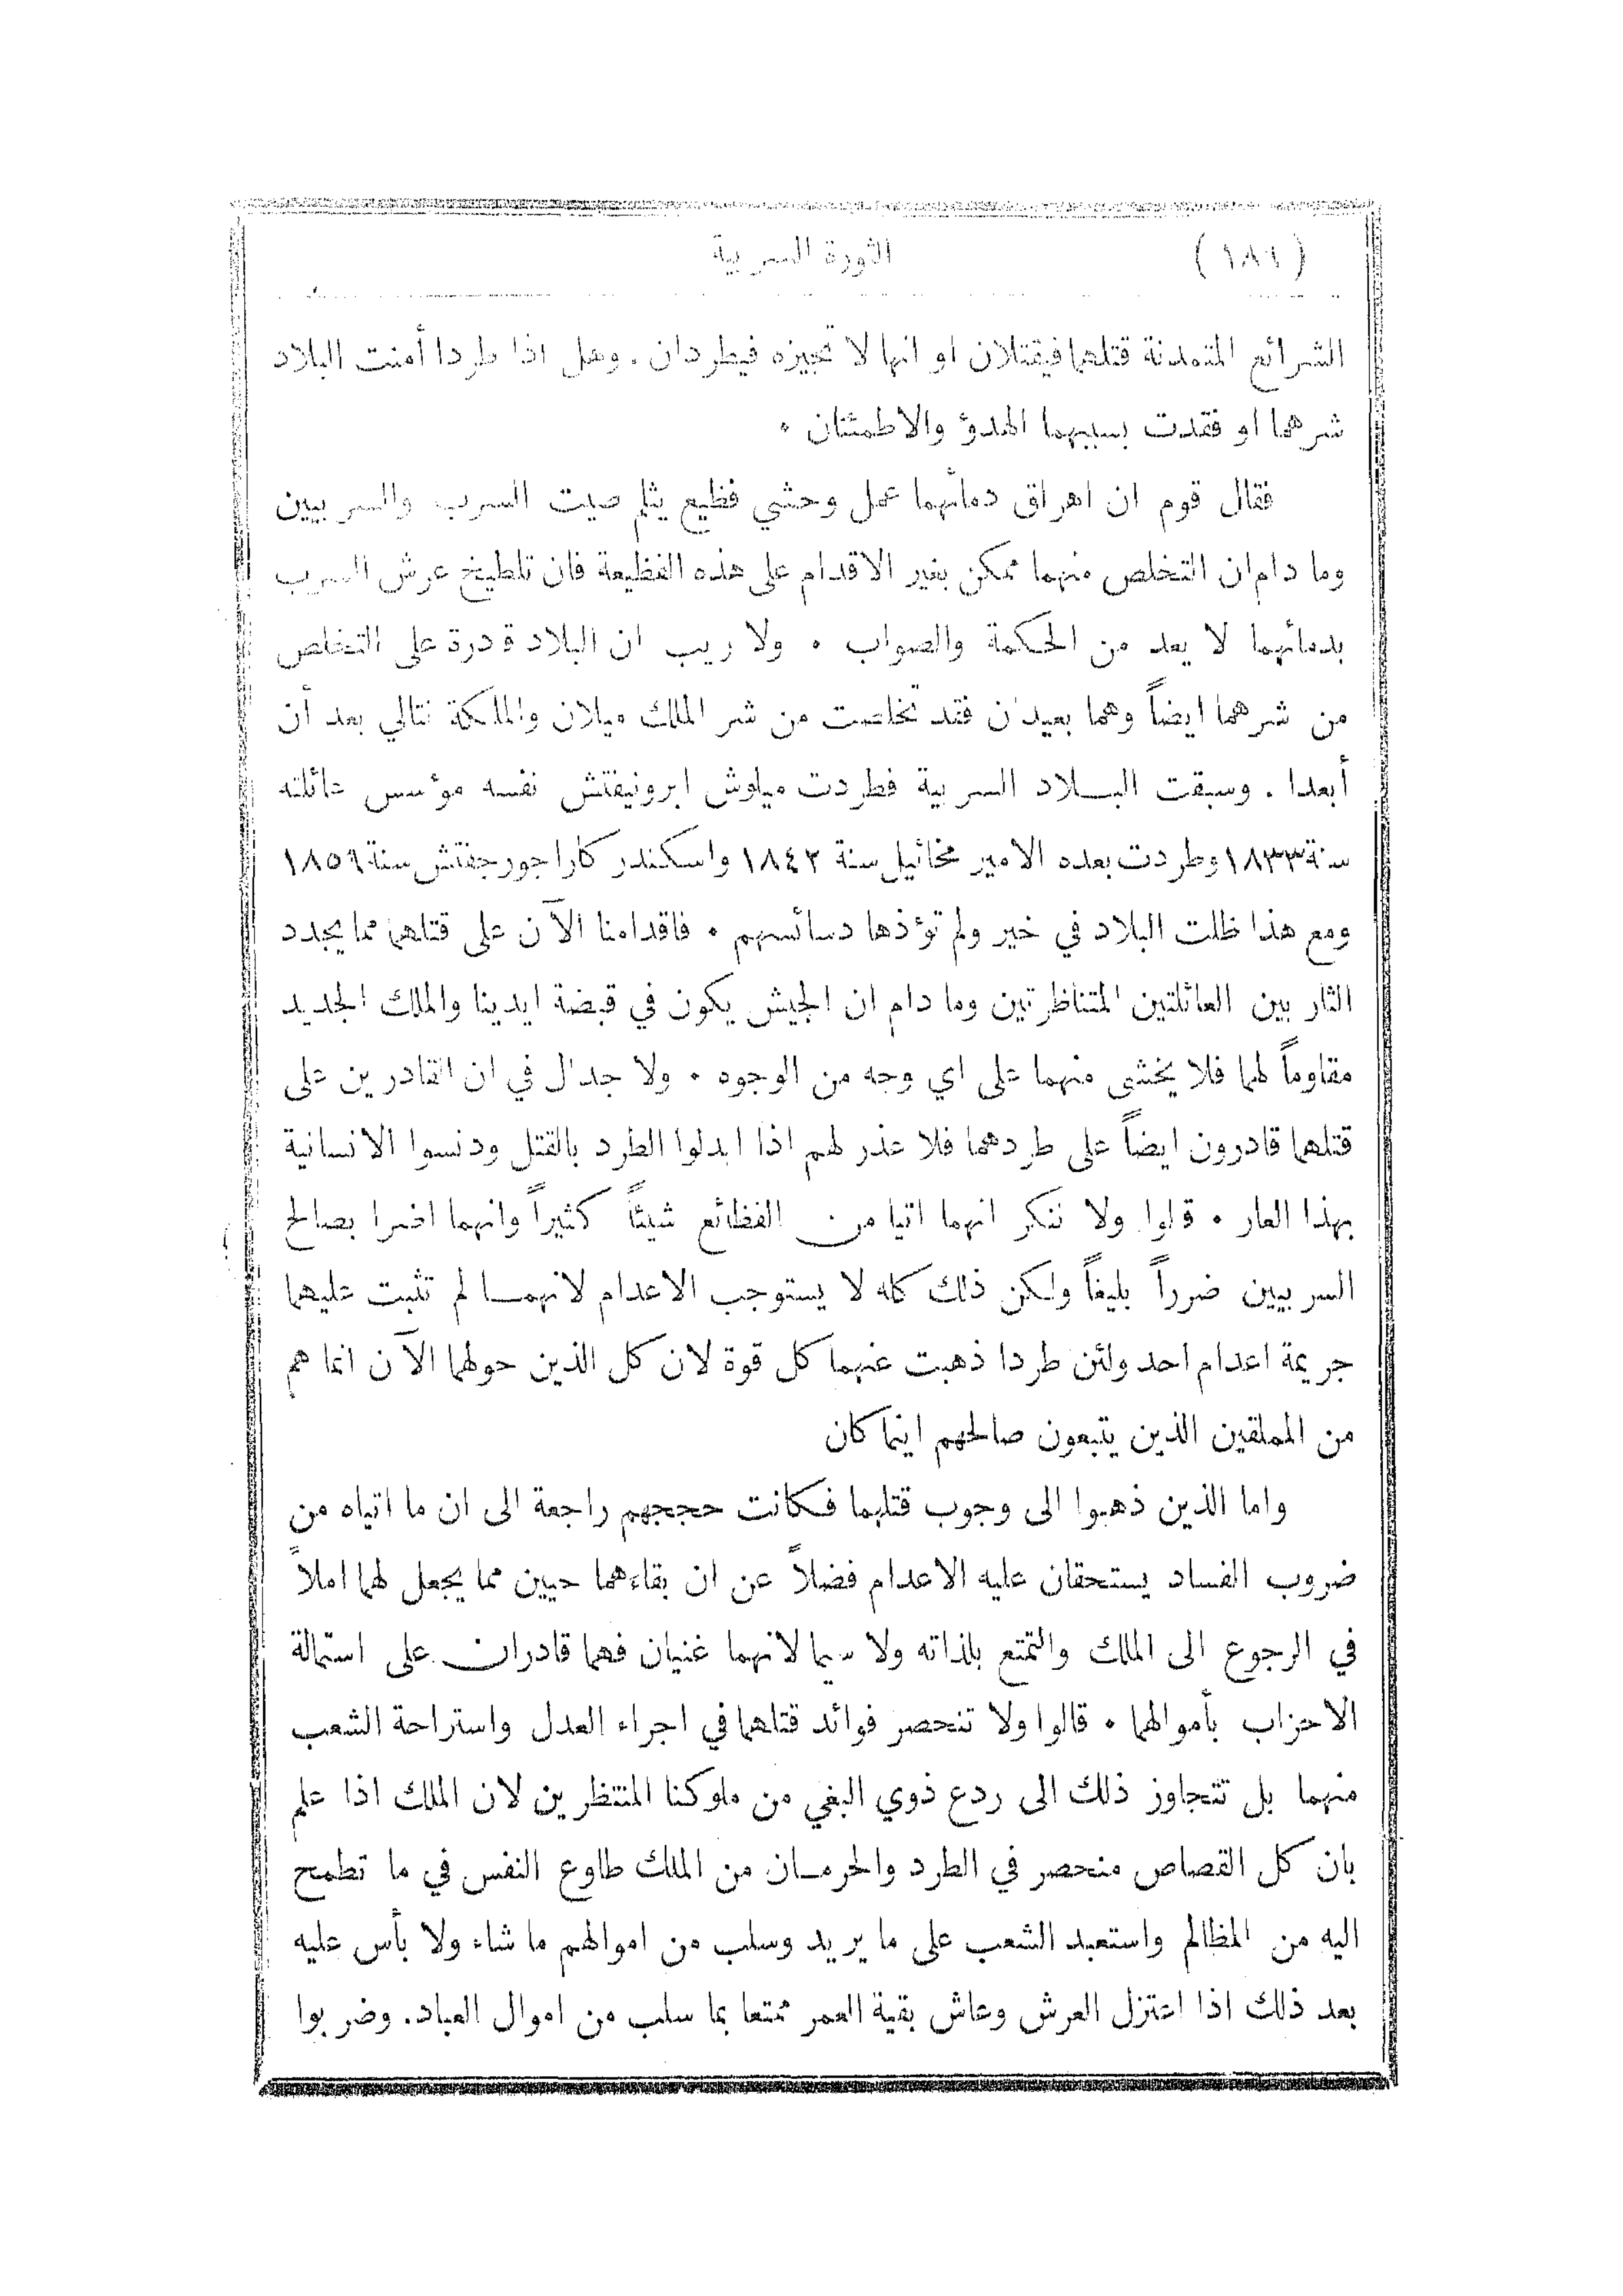 (١٨٦) الثورة السربية
الشرائع المتمدنة قتلهما فيقتلان او انها لا تجيزه فيطردان . وهل اذا طردا أمنت البلاد
شرهما او فقدت بسببهما الهدؤ والاطمئنان .
فقال قوم ان اهراق دمائهما عمل وحشي فظيع يثلم صيت السرب والسربيين
وما دام ان التخلص منهما ممكن بغير الاقدام على هذه الفظيعة فان تلطيخ عرش السرب
بدمائهما لا يعد من الحكمة والصواب . ولا ريب ان البلاد قادرة على التخلص
من شرهما ايضاً وهما بعيدان فقد تخلصت من شر الملك ميلان والملكة نتالي بعد أن
أبعدا . وسبقت البـلاد السربية فطردت ميلوش ابرونيفتش نفسه مؤسس عائلته
سنة ١٨٣٣ وطردت بعده الامير مخائيل سنة ١٨٤٢ واسكندر كاراجورجفتش سنة ١٨٥٩
ومع هذا ظلت البلاد في خير ولم تؤذها دسائسهم . فاقدامنا الآن على قتلهما مما يجدد
الثار بين العائلتين المتناظرتين وما دام ان الجيش يكون في قبضة ايدينا والملك الجديد
مقاوماً لهما فلا يخشى منهما على اي وجه من الوجوه . ولا جدال في ان القادرين على
قتلهما قادرون ايضاً على طردهما فلا عذر لهم اذا ابدلوا الطرد بالقتل ودنسوا الانسانية
بهذا العار . قالوا ولا ننكر انهما اتيا من الفظائع شيئاً كثيراً وانهما اضرا بصالح
السربيين ضرراً بليغاً ولكن ذلك كله لا يستوجب الاعدام لانهمـا لم تثبت عليهما
جريمة اعدام احد ولئن طردا ذهبت عنهما كل قوة لان كل الذين حولهما الآن انما هم
من المملقين الذين يتبعون صالحهم اينما كان
واما الذين ذهبوا الى وجوب قتلهما فـكانت حججهم راجعة الى ان ما اتياه من
ضروب الفساد يستحقان عليه الاعدام فضلاً عن ان بقاءهما حيين مما يجعل لهما املاً
في الرجوع الى الملك والتمتع بلذاته ولا سيما لانهما غنيان فهما قادران على استمالة
الاحزاب بأموالهما . قالوا ولا تنحصر فوائد قتلهما في اجراء العدل واستراحة الشعب
منهما بل تتجاوز ذلك الى ردع ذوي البغي من ملوكنا المنتظرين لان الملك اذا علم
بان كل القصاص منحصر في الطرد والحرمـان من الملك طاوع النفس في ما تطمح
اليه من المظالم واستعبد الشعب على ما يريد وسلب من اموالهم ما شاء ولا بأس عليه
بعد ذلك اذا اعتزل العرش وعاش بقية العمر ممتعا بما سلب من اموال العباد. وضربوا